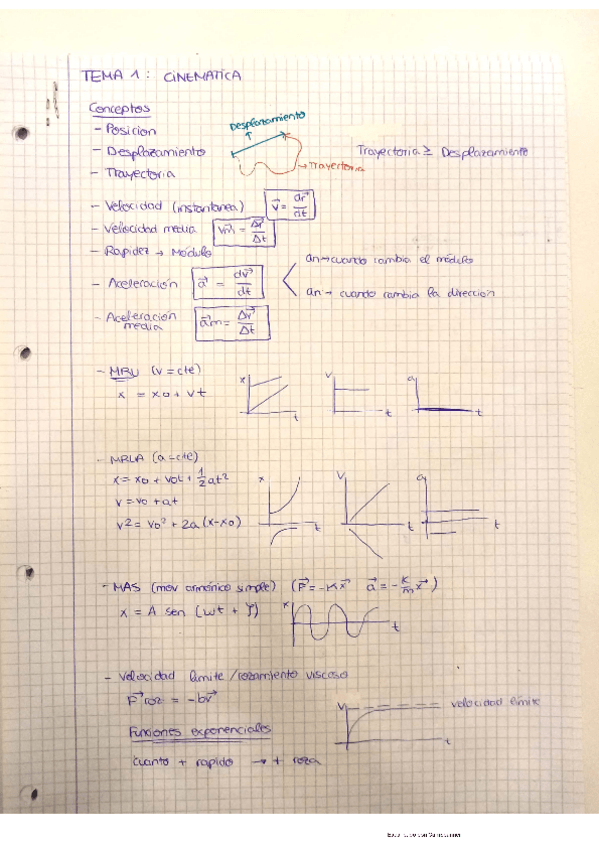 TEMA 1: CINEMATICA
Conceptos
- Posicion
- Desplazamiento
- Trayectoria
Desplazamiento
Trayectoria
Trayectoria ≥ Desplazamiento
- Velocidad (instantanea) v⃗ = dr⃗/dt
- Velocidad media v⃗m = Δr⃗/Δt
- Rapidez → Módulo
- Aceleración a⃗ = dv⃗/dt
an → cuando cambia el módulo
an → cuando cambia la dirección
- Aceleración media a⃗m = Δv⃗/Δt
- MRU (v = cte)
x = xo + vt
x t
v t
a t
- MRUA (a = cte)
x = xo + vot + 1/2 at²
v = vo + at
v² = vo² + 2a (x-xo)
x t
v t
a t
- MAS (mov armónico simple) (F⃗ = -Kx⃗ a⃗ = -K/m x⃗)
x = A sen (ωt + φ)
x t
- Velocidad limite / rozamiento viscoso
F⃗roz = -bv⃗
v t
velocidad límite
Funciones exponenciales
cuanto + rapido → + roza